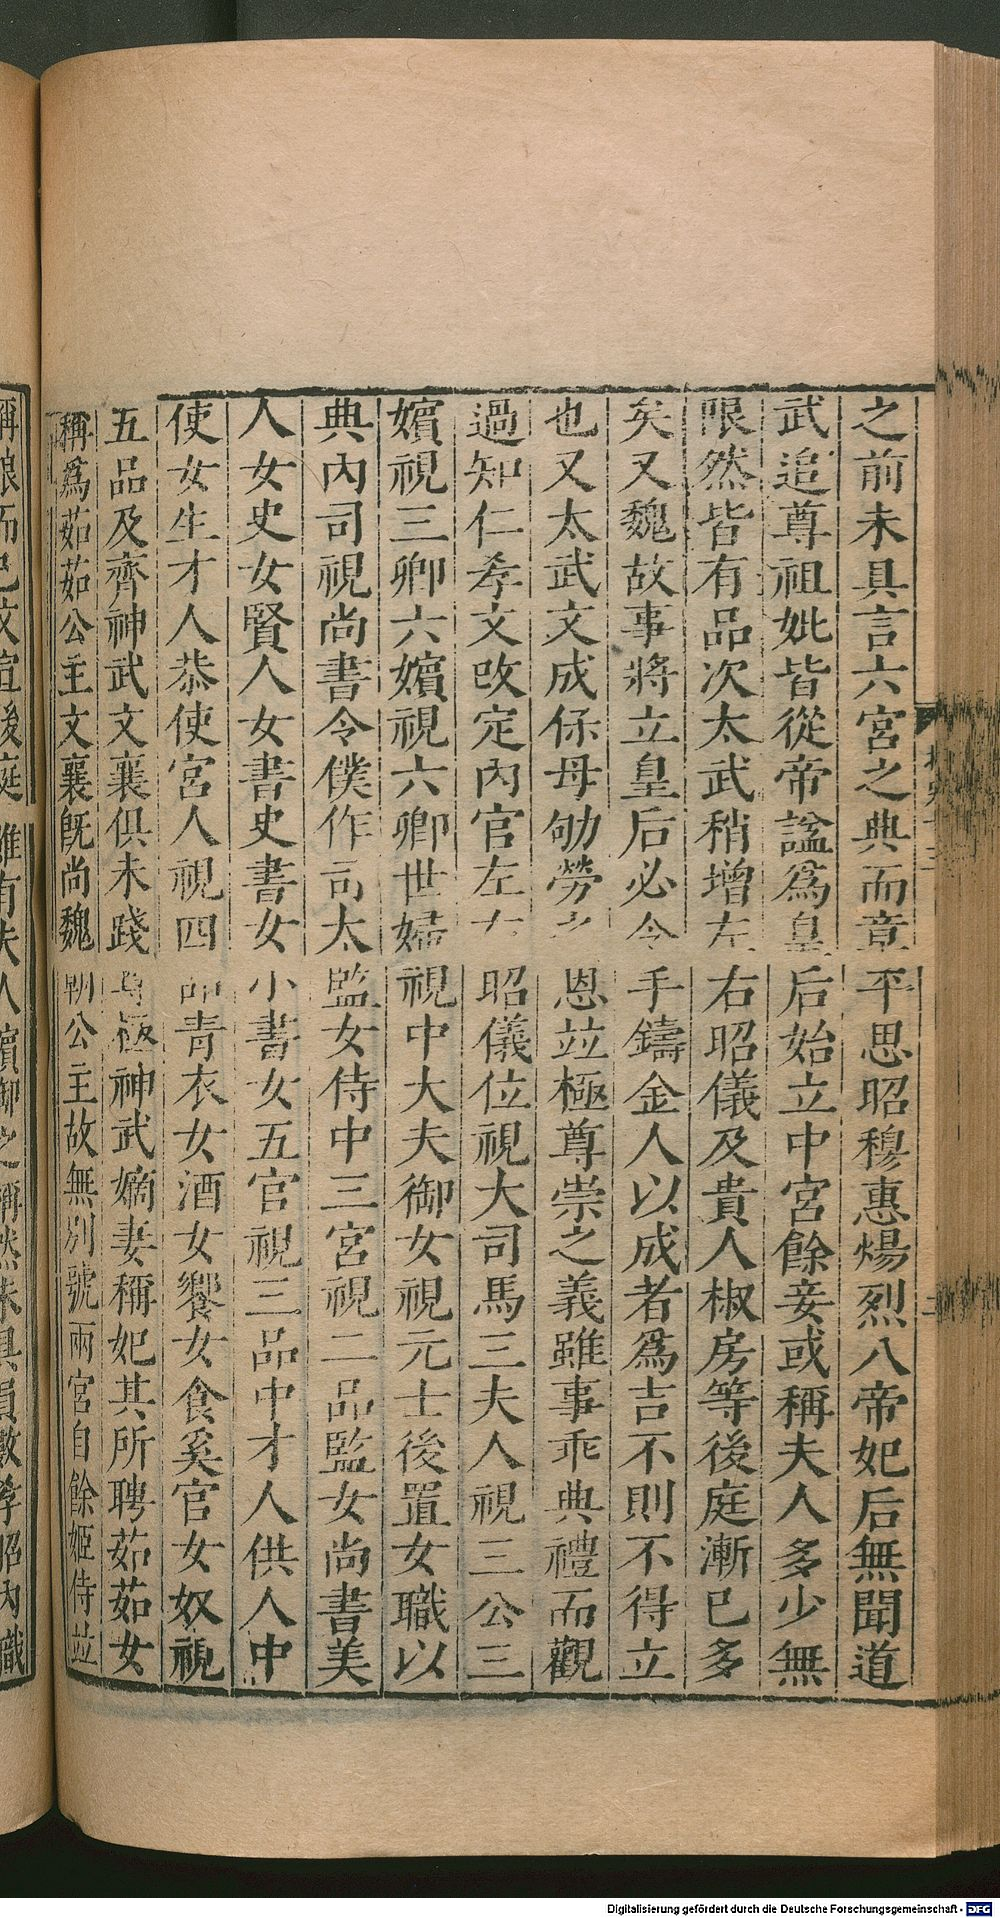 之前未具言六宮之典而章平思昭穆惠煬烈八帝妃后無聞道
武追尊祖妣皆從帝諡爲皇后始立中宮餘妾或稱夫人多少無
限然皆有品次太武稍增左右昭儀及貴人椒房等後庭漸已多
矣又魏故事將立皇后必令手鑄金人以成者爲吉不則不得立
也又太武文成保母劬勞之恩竝極尊崇之義雖事乖典禮而觀
過知仁孝文改定內官左右昭儀位視大司馬三夫人視三公三
嬪視三卿六嬪視六卿世婦視中大夫御女視元士後置女職以
典內司視尚書令僕作司太監女侍中三宮視二品監女尚書美
人女史女賢人女書史書女小書女五官視三品中才人供人中
使女生才人恭使宮人視四品青衣女酒女饗女食奚官女奴視
五品及齊神武文襄俱未踐尊極神武嫡妻稱妃其所聘茹茹女
稱爲茹茹公主文襄旣尚魏朝公主故無別號兩宮自餘姬侍竝
稱娘而已文宣後庭雖有夫人嬪御之稱然未具員數孝昭內職
Digitalisierung gefördert durch die Deutsche Forschungsgemeinschaft - DFG